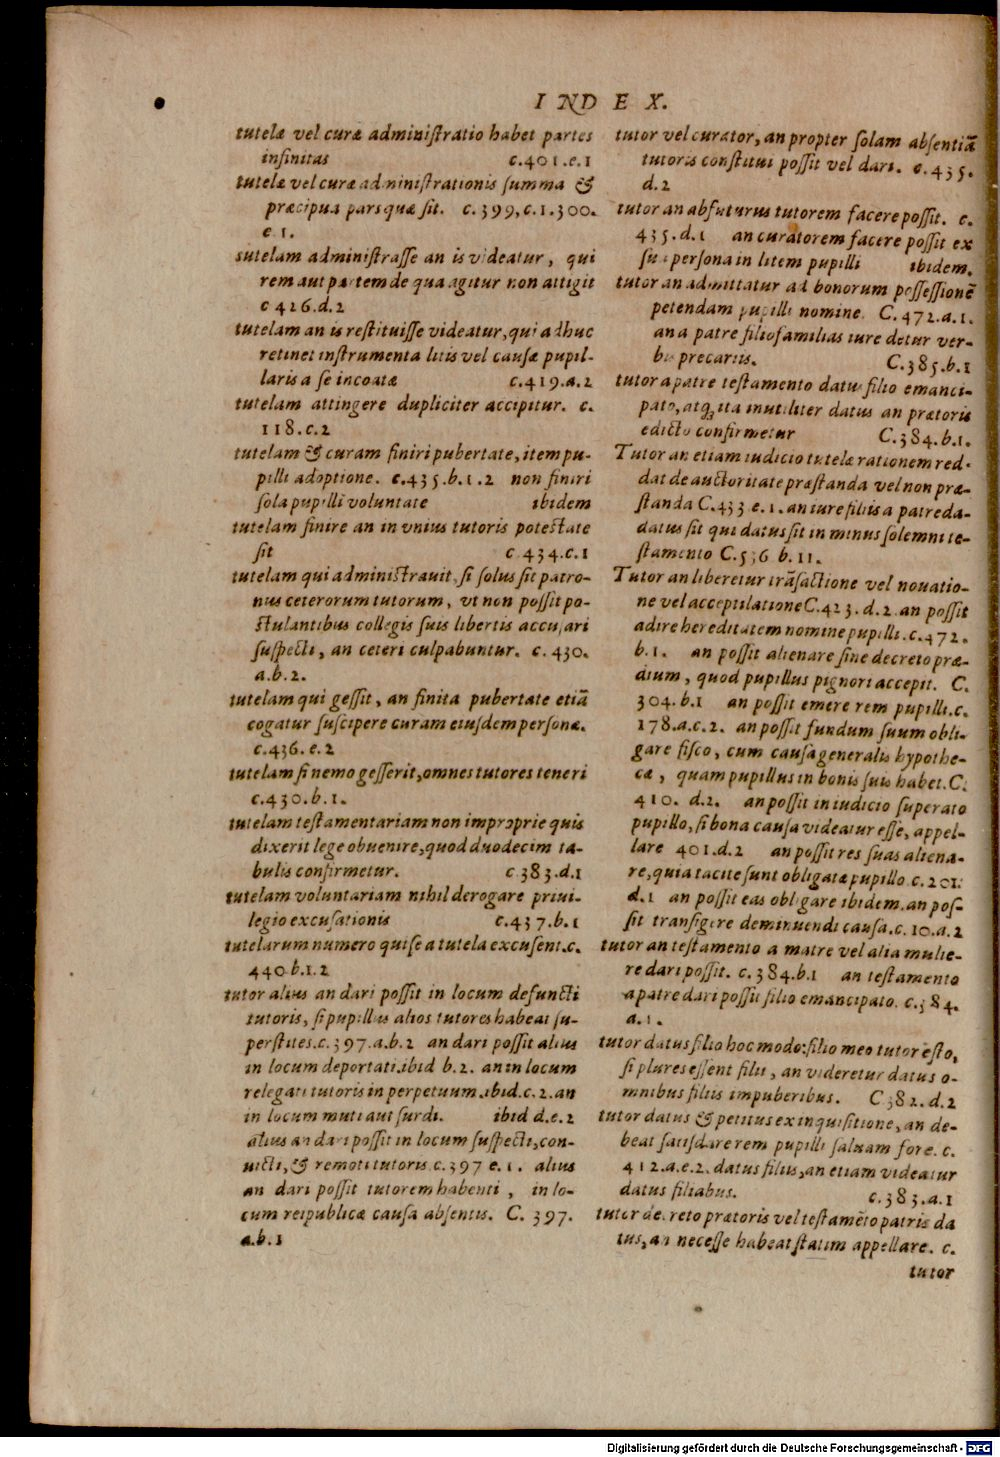 INDEX.
tutelæ vel curæ administratio habet partes
infinitas c.401.e.1
tutelæ vel curæ administrationis summa &
præcipua pars quæ sit. c.399,c.1.300.
e 1.
sutelam administrasse an is videatur, qui
rem aut partem de qua agitur non attigit
c 426.d.2
tutelam an is restituisse videatur, qui adhuc
retinet instrumenta litis vel causæ pupil-
laris a se incoatæ c.419.a.2
tutelam attingere dupliciter accipitur. c.
118.c.2
tutelam & curam finiri pubertate, item pu-
pilli adoptione. c.435.b.1.2 non finiri
sola pupilli voluntate ibidem
tutelam finire an in vnius tutoris potestate
sit c 434.c.1
tutelam qui administrauit, si solus sit patro-
nus ceterorum tutorum, vt non possit po-
stulantibus collegis suis libertis accusari
suspecti, an ceteri culpabuntur. c. 430.
a.b.2.
tutelam qui gessit, an finita pubertate etiã
cogatur suscipere curam eiusdem personæ.
c.436.e.2
tutelam si nemo gesserit, omnes tutores teneri
c.430.b.1.
tutelam testamentariam non improprie quis
dixerit lege obuenire, quod duodecim ta-
bulis confirmetur. c 383.d.1
tutelam voluntariam nihil derogare priui-
legio excusationis c.437.b.1
tutelarum numero qui se a tutela excusent.c.
440.b.1.2
tutor alius an dari possit in locum defuncti
tutoris, si pupillus alios tutores habeat su-
perstites.c.397.a.b.2 an dari possit alius
in locum deportati.ibid b.2. an in locum
relegati tutoris in perpetuum.ibid.c.2.an
in locum muti aut surdi. ibid d.e.2
alius an dari possit in locum suspecti, con-
uicti, & remoti tutoris.c.397 e.1. alius
an dari possit tutorem habenti, in lo-
cum reipublicæ causa absentis. C. 397.
a.b.1
tutor vel curator, an propter solam absentiã
tutoris constitui possit vel dari. c.435.
d.2
tutor an abfuturus tutorem facere possit. c.
435.d.1 an curatorem facere possit ex
sua persona in litem pupilli ibidem.
tutor an admittatur ad bonorum possessionẽ
petendam pupilli nomine. C.472.a.1.
an a patre filiofamilias iure detur ver-
bis precariis. C.385.b.1
tutor a patre testamento datus filio emanci-
pato, atq; ita inutiliter datus an prætoris
edicto confirmetur C.384.b.1.
Tutor an etiam iudicio tutelæ rationem red-
dat de auctoritate præstanda vel non præ-
standa C.433 e.1. an iure filiis a patre da-
datus sit qui datus sit in minus solemni te-
stamento C.536 b.11.
Tutor an liberetur trãsactione vel nouatio-
ne vel acceptilatione C.423.d.2.an possit
adire hereditatem nomine pupilli.c.472.
b.1. an possit alienare sine decreto præ-
dium, quod pupillus pignori accepit. C.
304.b.1 an possit emere rem pupilli.c.
178.a.c.2. an possit fundum suum obli-
gare fisco, cum causa generalis hypothe-
cæ, quam pupillus in bonis suis habet.C.
410. d.2. an possit in iudicio superato
pupillo, si bona causa videatur esse, appel-
lare 401.d.2 an possit res suas aliena-
re, quia tacite sunt obligatæ pupillo.c.201.
d.1 an possit eas obligare ibidem.an pos-
sit transigere deminuendi causa.c.10.a.2
tutor an testamento a matre vel alia mulie-
re dari possit. c.384.b.1 an testamento
a patre dari possit filio emancipato. c.384.
a.1.
tutor datus filio hoc modo: filio meo tutor esto,
si plures essent filii, an videretur datus o-
mnibus filiis impuberibus. C 382.d.2
tutor datus & petitus ex inquisitione, an de-
beat satisdare rem pupilli saluam fore. c.
412.a.e.2. datus filiis, an etiam videatur
datus filiabus. c.383.a.1
tutor decreto prætoris vel testamẽto patris da
tus, an necesse habeat statim appellare. c.
tutor
Digitalisierung gefördert durch die Deutsche Forschungsgemeinschaft - DFG